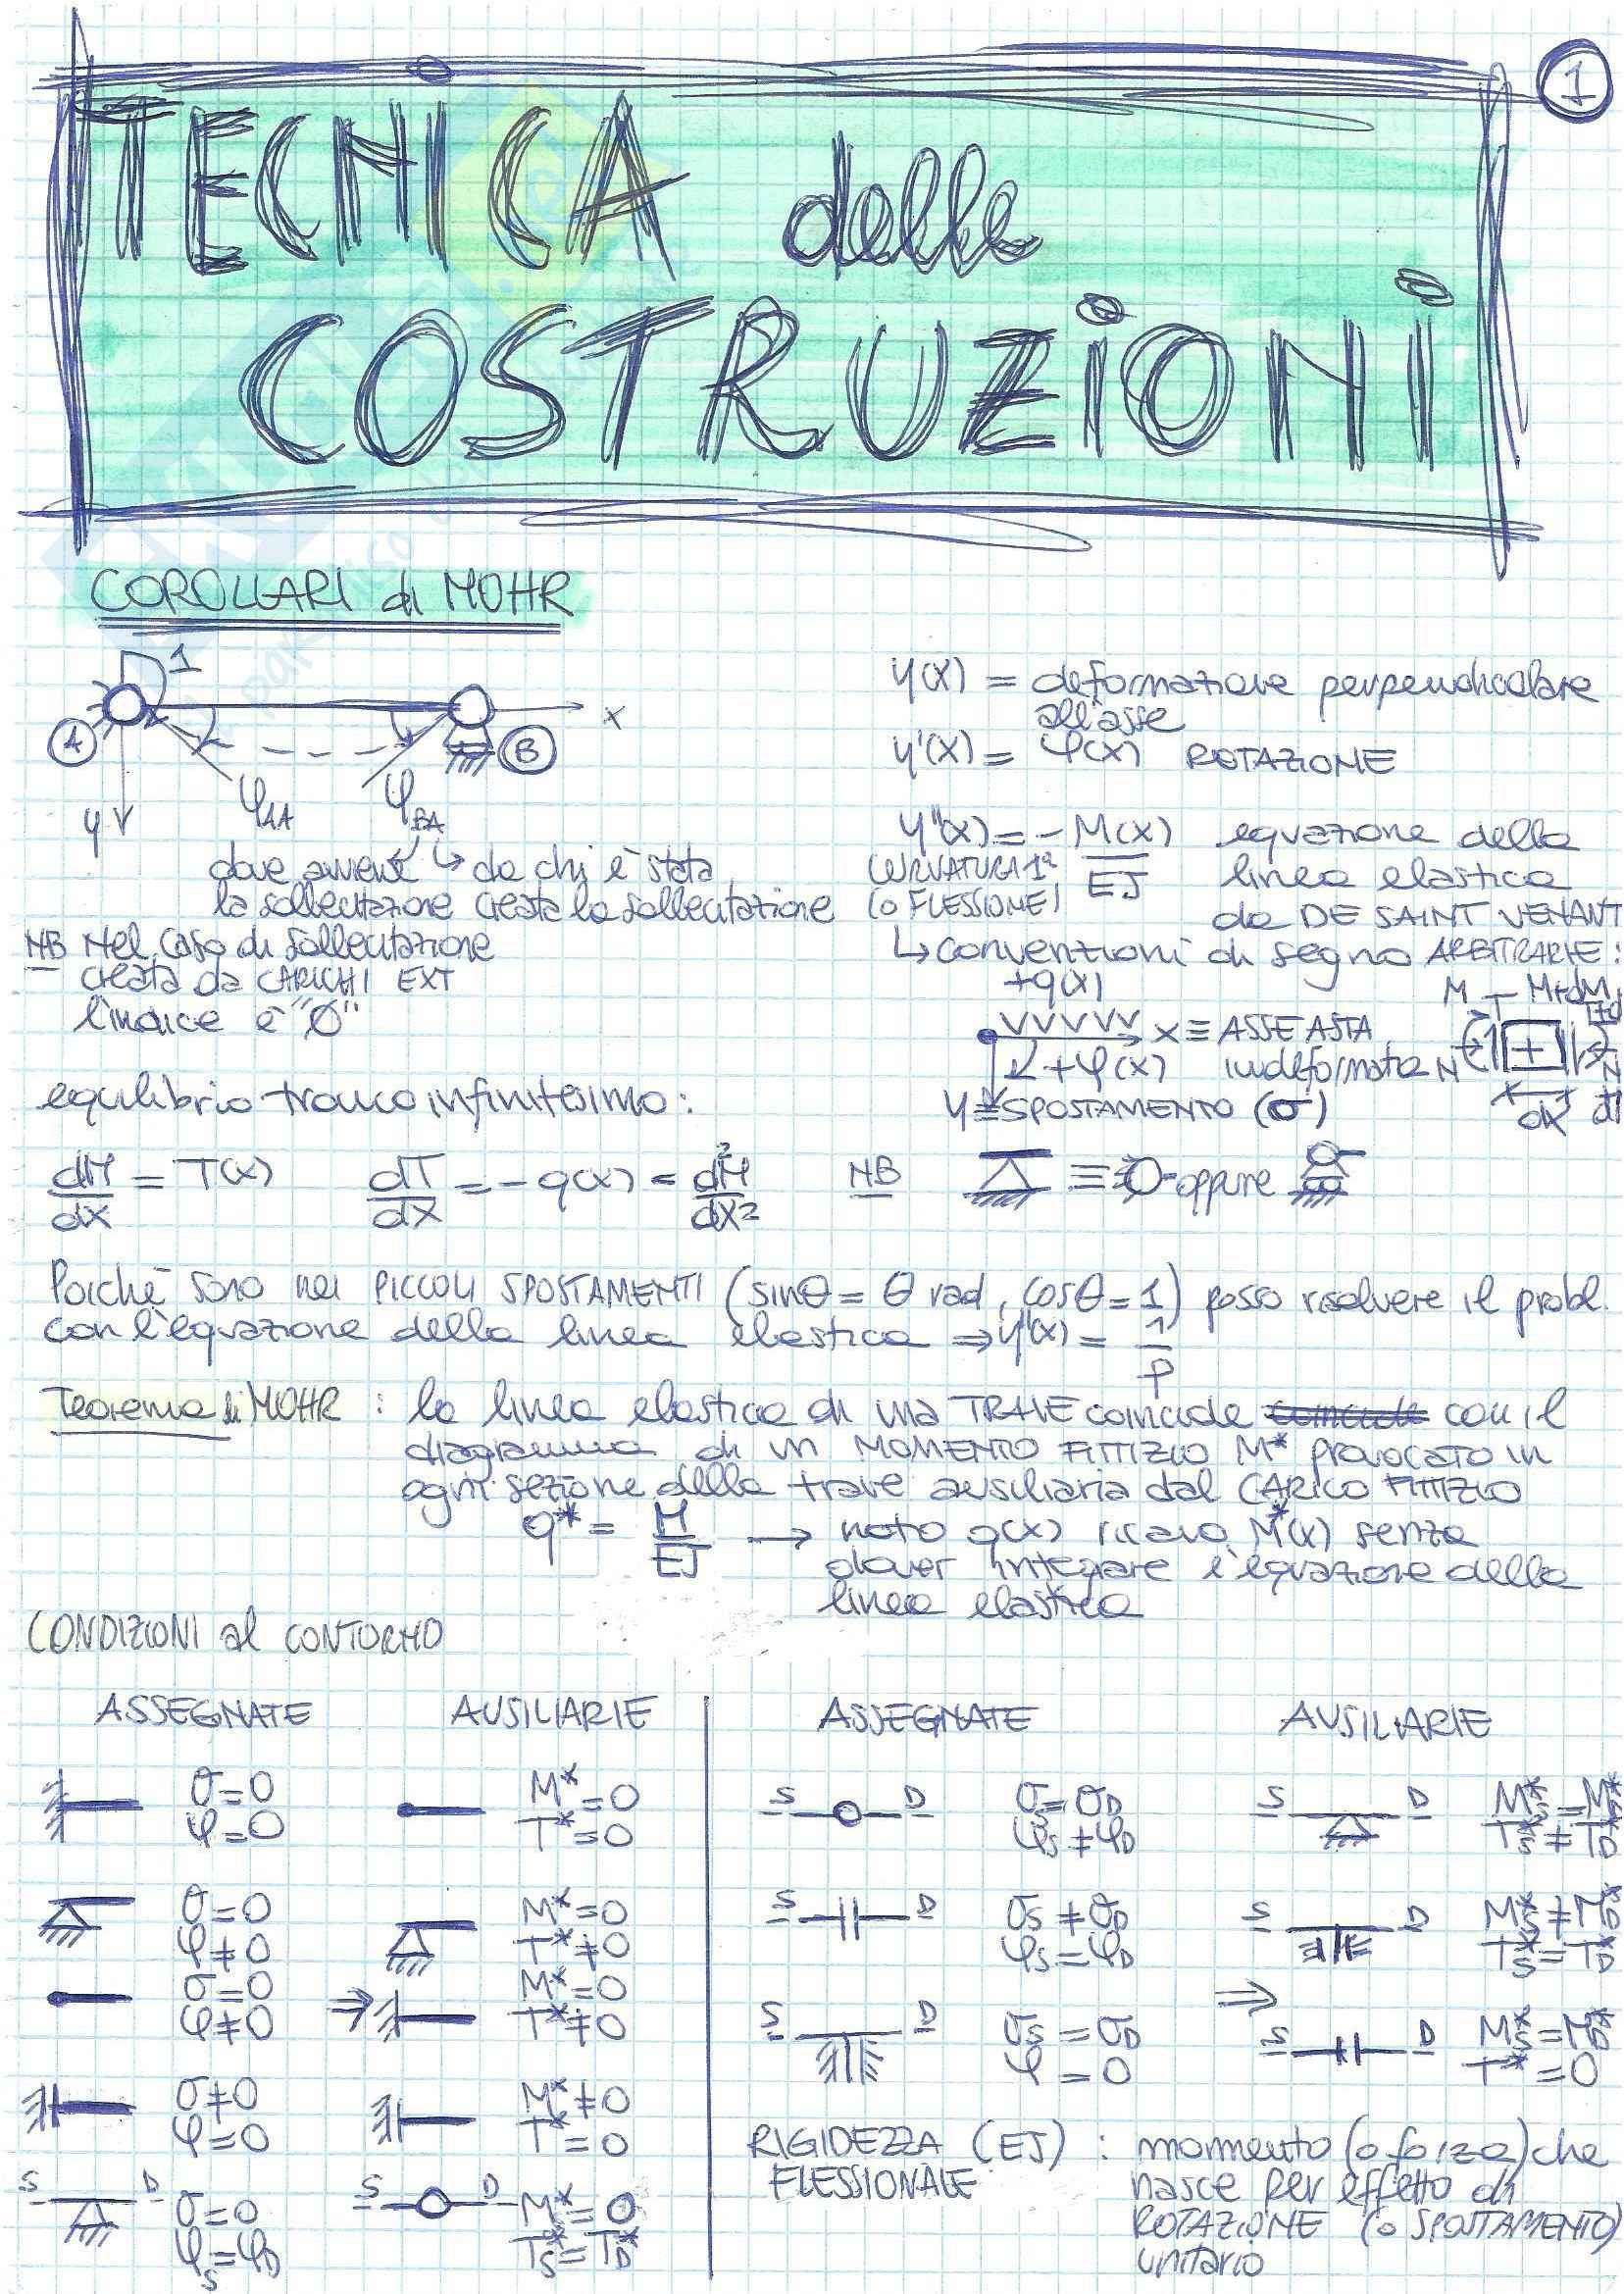 1
TECNICA delle
COSTRUZIONI
COROLLARI di MOHR
1
A
B
x
y
φAA
φBA
dove avviene ↳ da chi è stata
la sollecitazione creata la sollecitazione
NB Nel caso di sollecitazione
creata da CARICHI EXT
l'indice è "Ø"
y(x) = deformazione perpendicolare
all'asse
y'(x) = φ(x) ROTAZIONE
y"(x) = - M(x)/EJ equazione della
CURVATURA 1ª
(o FLESSIONE)
linea elastica
da DE SAINT VENANT
↳ convenzioni di segno ARBITRARIE:
+q(x)
x ≡ ASSE ASTA
indeformata
+φ(x)
y ≡ SPOSTAMENTO (σ)
M T M+dM
N
dx
equilibrio tronco infinitesimo:
dM/dx = T(x) dT/dx = - q(x) = d²M/dx²
NB ≡ oppure
Poichè sono nei PICCOLI SPOSTAMENTI (sinθ = θ rad, cosθ = 1) posso risolvere il probl.
con l'equazione della linea elastica ⇒ y"(x) = 1/ρ
Teorema di MOHR : la linea elastica di una TRAVE coincide con il
diagramma di un MOMENTO FITTIZIO M* provocato in
ogni sezione della trave ausiliaria dal CARICO FITTIZIO
q* = M/EJ → noto q(x) ricavo M*(x) senza
dover integrare l'equazione della
linea elastica
CONDIZIONI al CONTORNO
ASSEGNATE AUSILIARIE
σ=0 M*=0
φ=0 T*=0
σ=0 M*=0
φ≠0 T*≠0
σ=0 M*=0
φ≠0 ⇒ T*≠0
σ≠0 M*≠0
φ=0 T*=0
S D σ=0 S D M*=0
φS=φD TS*=TD*
ASSEGNATE AUSILIARIE
S D σS=σD S D MS*=MD*
φS≠φD TS*≠TD*
S D σS≠σD S D MS*≠MD*
φS=φD TS*=TD*
⇒
S D σS=σD S D MS*=MD*
φ=0 T*=0
RIGIDEZZA (EJ) : momento (o forza) che
FLESSIONALE nasce per effetto di
ROTAZIONE (o SPOSTAMENTO)
unitario